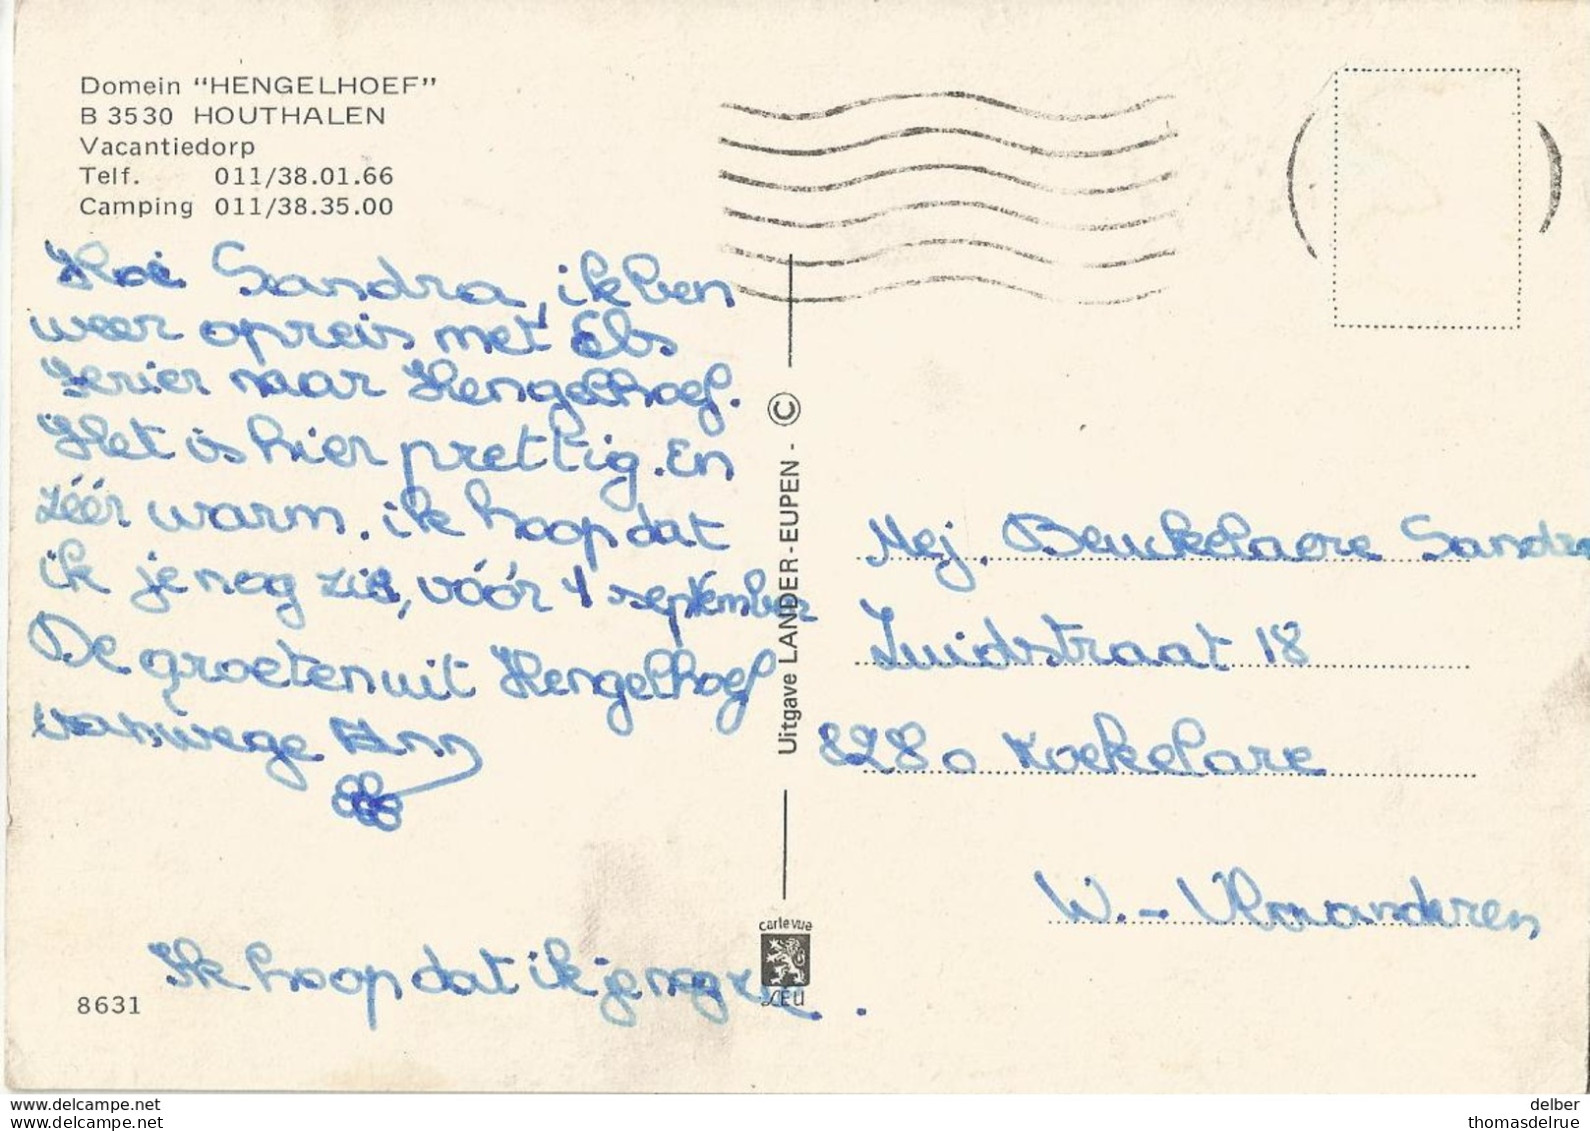 Domein "HENGELHOEF"
B 3530 HOUTHALEN
Vacantiedorp
Telf. 011/38.01.66
Camping 011/38.35.00
Hoi Sandra, ik ben
weer op reis met
naar Hengelhoef.
Het is hier prettig. En
zéér warm. ik hoop dat
ik je nog zie, vóór 1 september
De groeten uit Hengelhoef
vanwege Ann
Ik hoop dat ik je nog zie.
8631
Uitgave LANDER-EUPEN - ©
carte vue
LEU
Mej. Beuckelaere Sandra
Zuidstraat 18
8280 Koekelare
W.-Vlaanderen
delcampe.net
delber
thomasdelrue